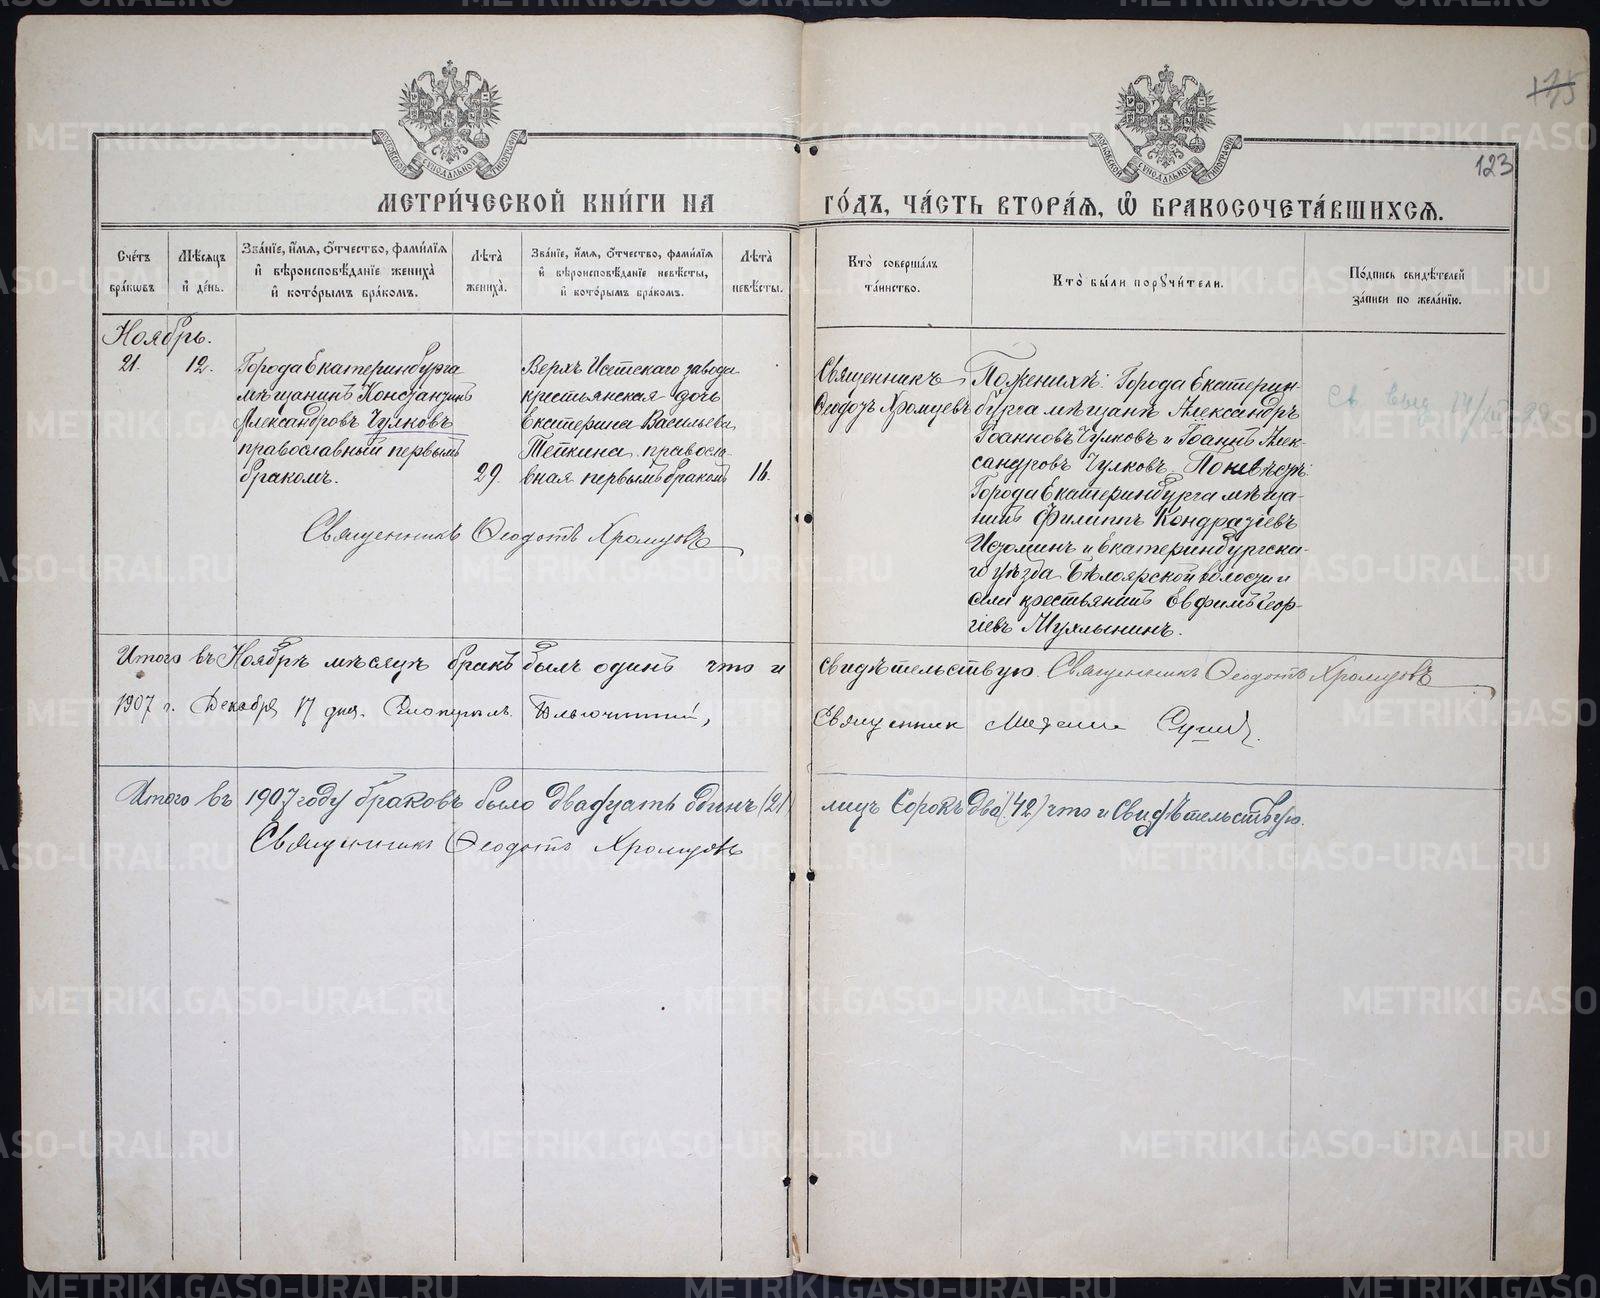 135
123
МОСКОВСКОЙ СѴНОДАЛЬНОЙ ТИПОГРАФІИ
МОСКОВСКОЙ СѴНОДАЛЬНОЙ ТИПОГРАФІИ
МЕТРИ́ЧЕСКОЙ КНИ́ГИ НА ГО́ДЪ, ЧА́СТЬ ВТОРА́Я, Ѽ БРАКОСОЧЕТА́ВШИХСЯ.
Сче́тъ бра́кѡвъ
Мѣ́сяцъ и҆ де́нь.
Зва́нїе, и҆́мя, ѻ҆́тчество, фами́лїя и҆ вѣроисповѣ́данїе жениха̀ и҆ кото́рымъ бра́комъ.
Лѣ́та жениха̀.
Зва́нїе, и҆́мя, ѻ҆́тчество, фами́лїя и҆ вѣроисповѣ́данїе невѣ́сты, и҆ кото́рымъ бра́комъ.
Лѣ́та невѣ́сты.
Кто̀ соверша́лъ та́инство.
Кто̀ бы́ли порꙋчи́тели.
По́дпись свидѣ́телей за́писи по жела́нїю.
Ноябрь.
21.
12.
Города Екатеринбурга
мѣщанинъ Константинъ
Александровъ Чулковъ
православный первымъ
бракомъ.
29.
Верхъ Исетскаго завода
крестьянская дочь
Екатерина Васильева
Тепкина, правосла-
вная первымъ бракомъ
16.
Священникъ
Ѳеодотъ Хромцовъ
По женихѣ: Города Екатерин-
бурга мѣщане Александръ
Іоанновъ Чулковъ и Іоаннъ Алек-
сандровъ Чулковъ. По невѣстѣ:
Города Екатеринбурга мѣща-
нинъ Филиппъ Кондратіевъ
Изюминъ и Екатеринбургска-
го уѣзда Бѣлоярской волости и
села крестьянинъ Евфимъ Геор-
гіевъ Мухлынинъ.
Св. выд.
Священникъ Ѳеодотъ Хромцовъ
Итого въ Ноябрѣ мѣсяцѣ бракъ былъ одинъ что и свидѣтельствую. Священникъ Ѳеодотъ Хромцовъ
1907 г. Декабря 17 дня. Смотрѣлъ Благочинный, Священник
Итого въ 1907 году браковъ было двадцать одинъ (21) лицъ сорокъ два (42) что и свидѣтельствую.
Священникъ Ѳеодотъ Хромцовъ
METRIKI.GASO-URAL.RU